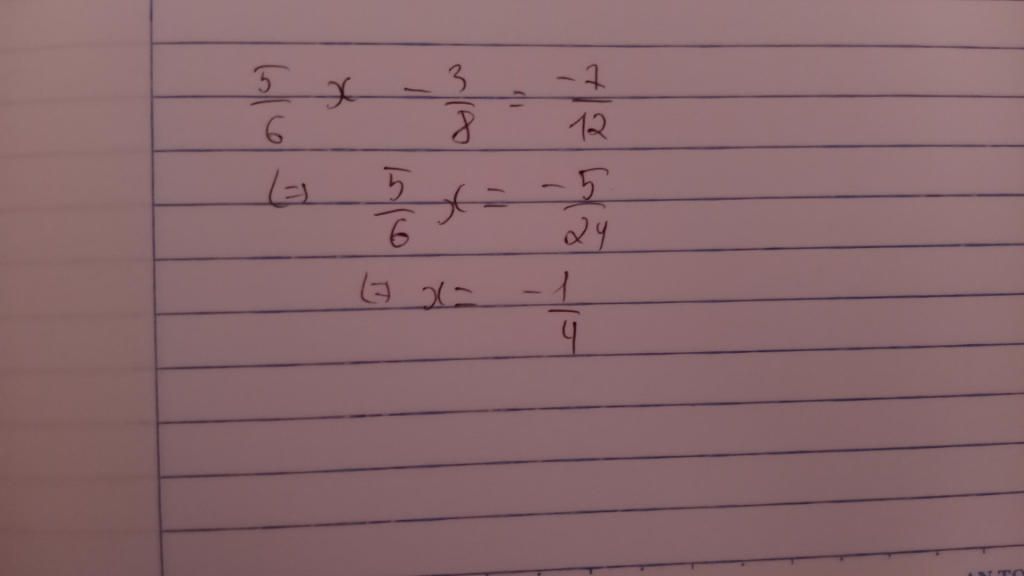 5/6 x - 3/8 = -7/12
<=> 5/6 x = -5/24
<=> x = -1/4